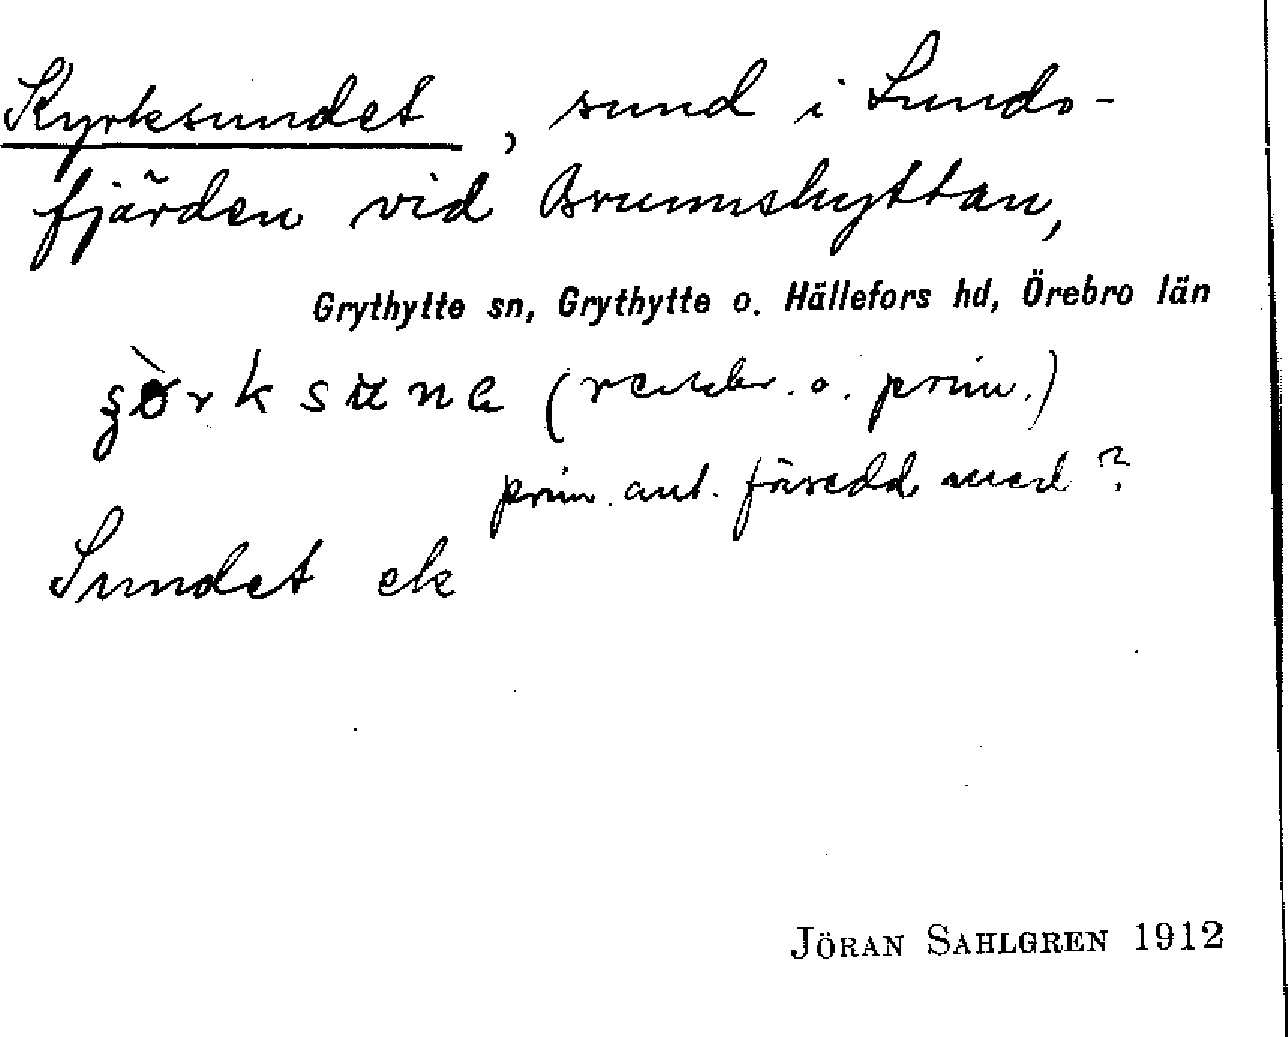 Kyrksundet, sund i Sunds-
fjärden vid Brunnshyttan,
Grythytte sn, Grythytte o. Hällefors hd, Örebro län
(o. prim.)
prim. ant. försedd med ?
Sundet ek
JÖRAN SAHLGREN 1912